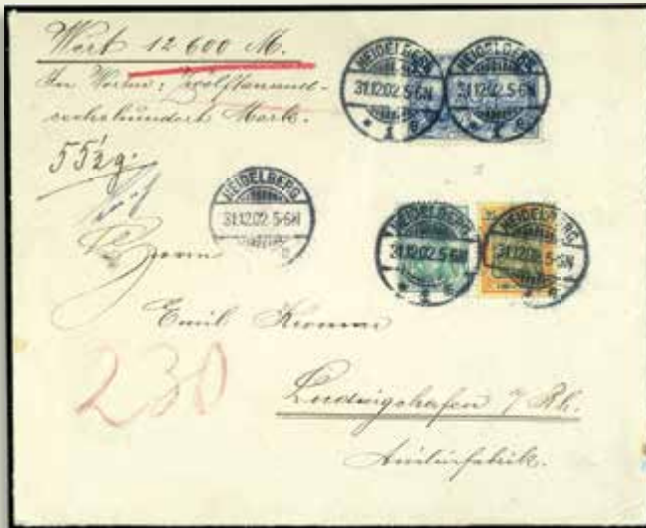 Wert 12 600 M.
In Worten: Zwölftausend-
sechshundert Mark.
55½ g.
HEIDELBERG
31.12.02.5-6N
* 1 e
HEIDELBERG
31.12.02.5-6N
* 1 e
HEIDELBERG
31.12.02.5-6N
HEIDELBERG
31.12.02.5-6N
HEIDELBERG
31.12.02.5-6N
Herrn
Emil
230
Ludwigshafen a/Rh.
Anilinfabrik.